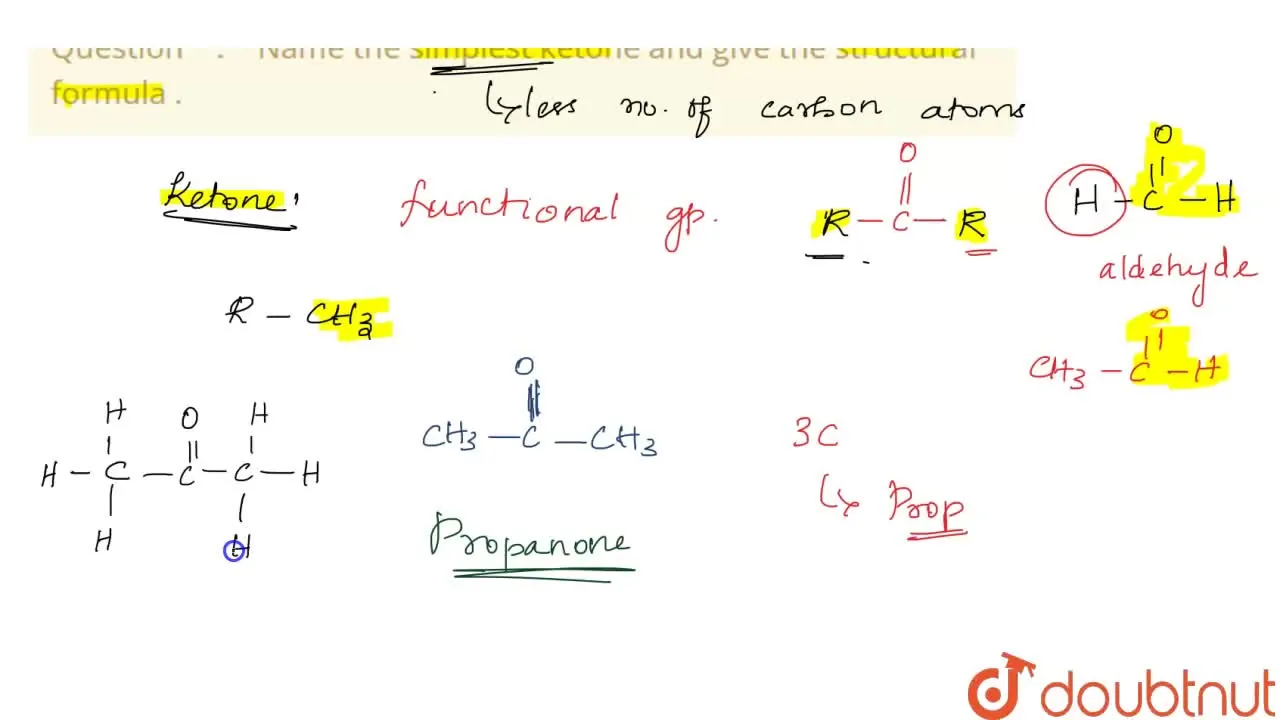 Question : Name the simplest ketone and give the structural
formula .
less no. of carbon atoms
Ketone: functional gp.
O
||
R — C — R
O
||
H — C — H
aldehyde
R — CH3
O
||
CH3 — C — H
H O H
| || |
H — C — C — C — H
| |
H H
O
||
CH3 — C — CH3
3C
Prop
Propanone
doubtnut